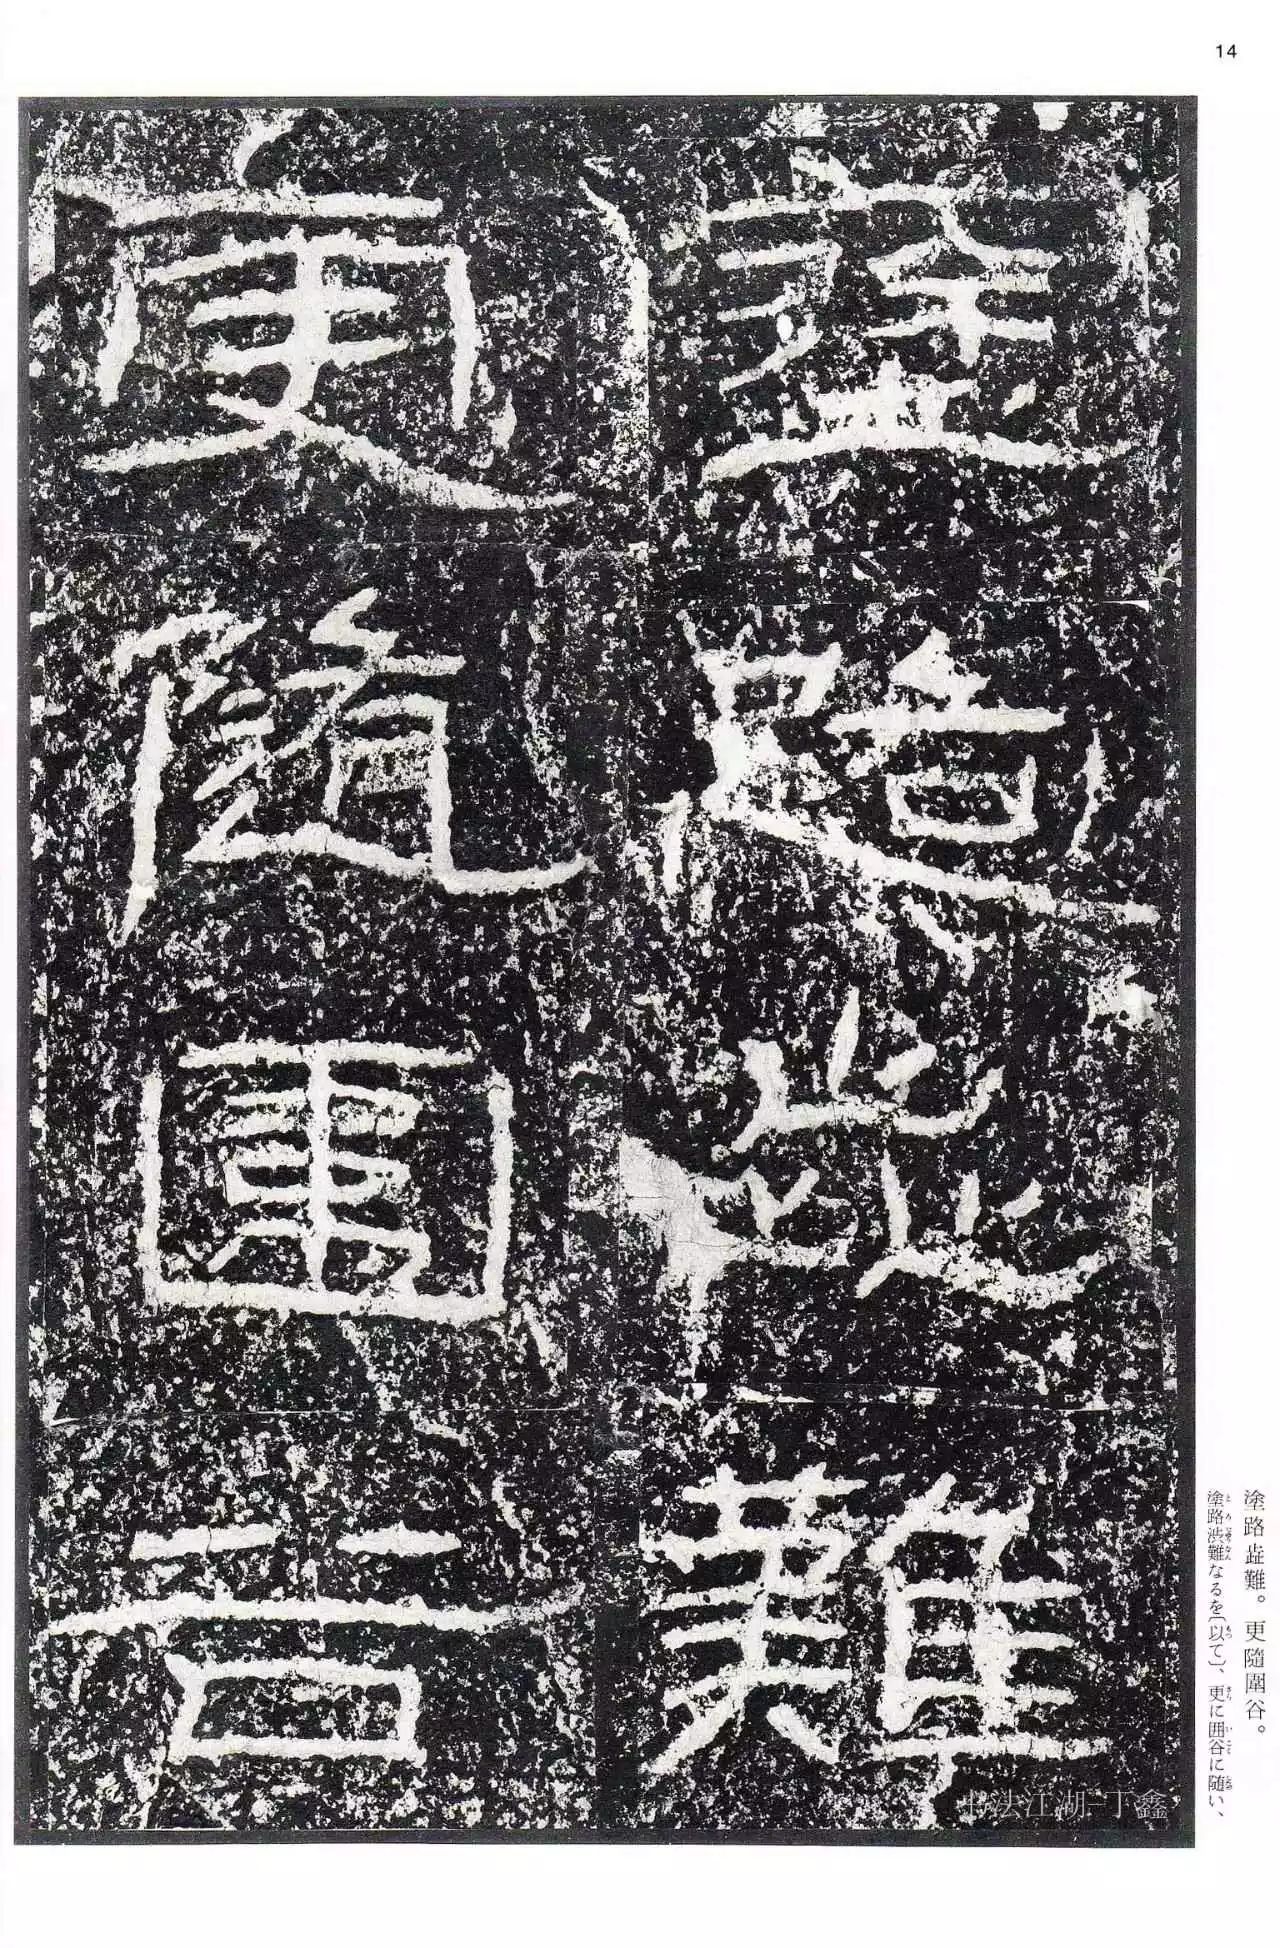 14
塗路歰難
更隨圍谷
塗路歰難。更隨圍谷。
塗路渋難なるを〔以て〕、更に囲谷に随い、
法江湖-丁鑫